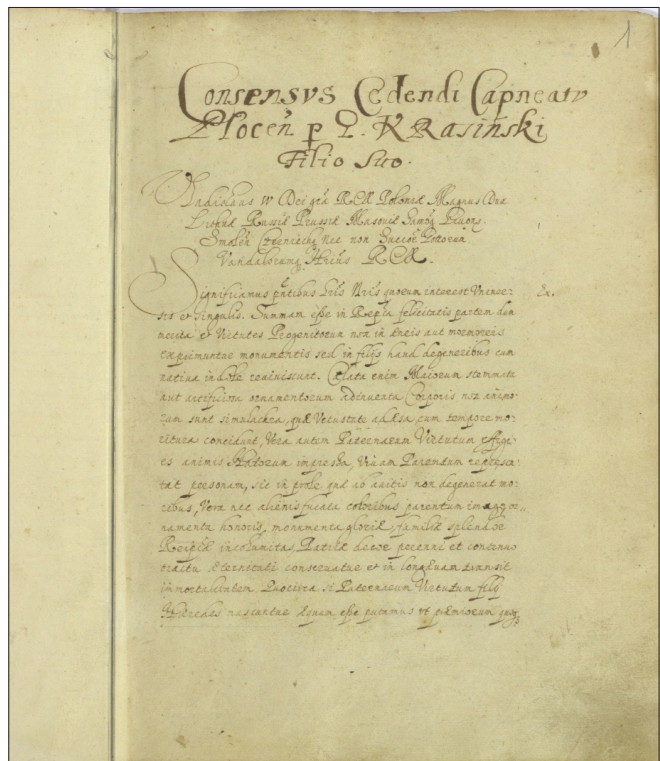 1
Consensvs Cedendi Capneatv
Plocen̄ p G. KRasiński
Filio Suo.
Vladislaus IV Dei grā REX Poloniæ Magnus Dux
Lithuæ Russiæ Prussiæ Masoviæ Samog Livons.
Smolen Czerniechq Nec non Suecor̄ Gottorum
Vandalorumq Hrius REX.
Significamus pn̄tibus Lris Nris quorum interest Vniver:
sis et singulis. Summam esse in Repca felicitatis partem dum
merita et Virtutes Progenitorum non in æneis aut marmoreis
exprimuntur monumentis sed in filijs haud degeneribus cum
nativa indole reviviscunt. Cælata enim Maiorum stemmata
aut artificiosa ornamentorum adinventa Corporis non animo:
rum sunt simulachra, quæ Vetustate adæsa cum tempore mo:
ritura concidunt, Vera autem Paternarum Virtutum effigi:
es animis Natorum impressa, Vivam Parentum repræsen:
tat personam, sic in prole quæ ab avitis non degenerat mo:
ribus, Vera nec alienis fucata coloribus parentum imago or:
namenta honoris, monumenta gloriæ, familiæ splendor
Reipcæ incolumitas, Patriæ decor perenni et continuo
tractu æternitati conservatur et in longævam transit
immortalitatem. Proinde si Paternarum Virtutum filij
Hæredes nascantur Æquum esse putamus vt præmiorum quoq
Ex.